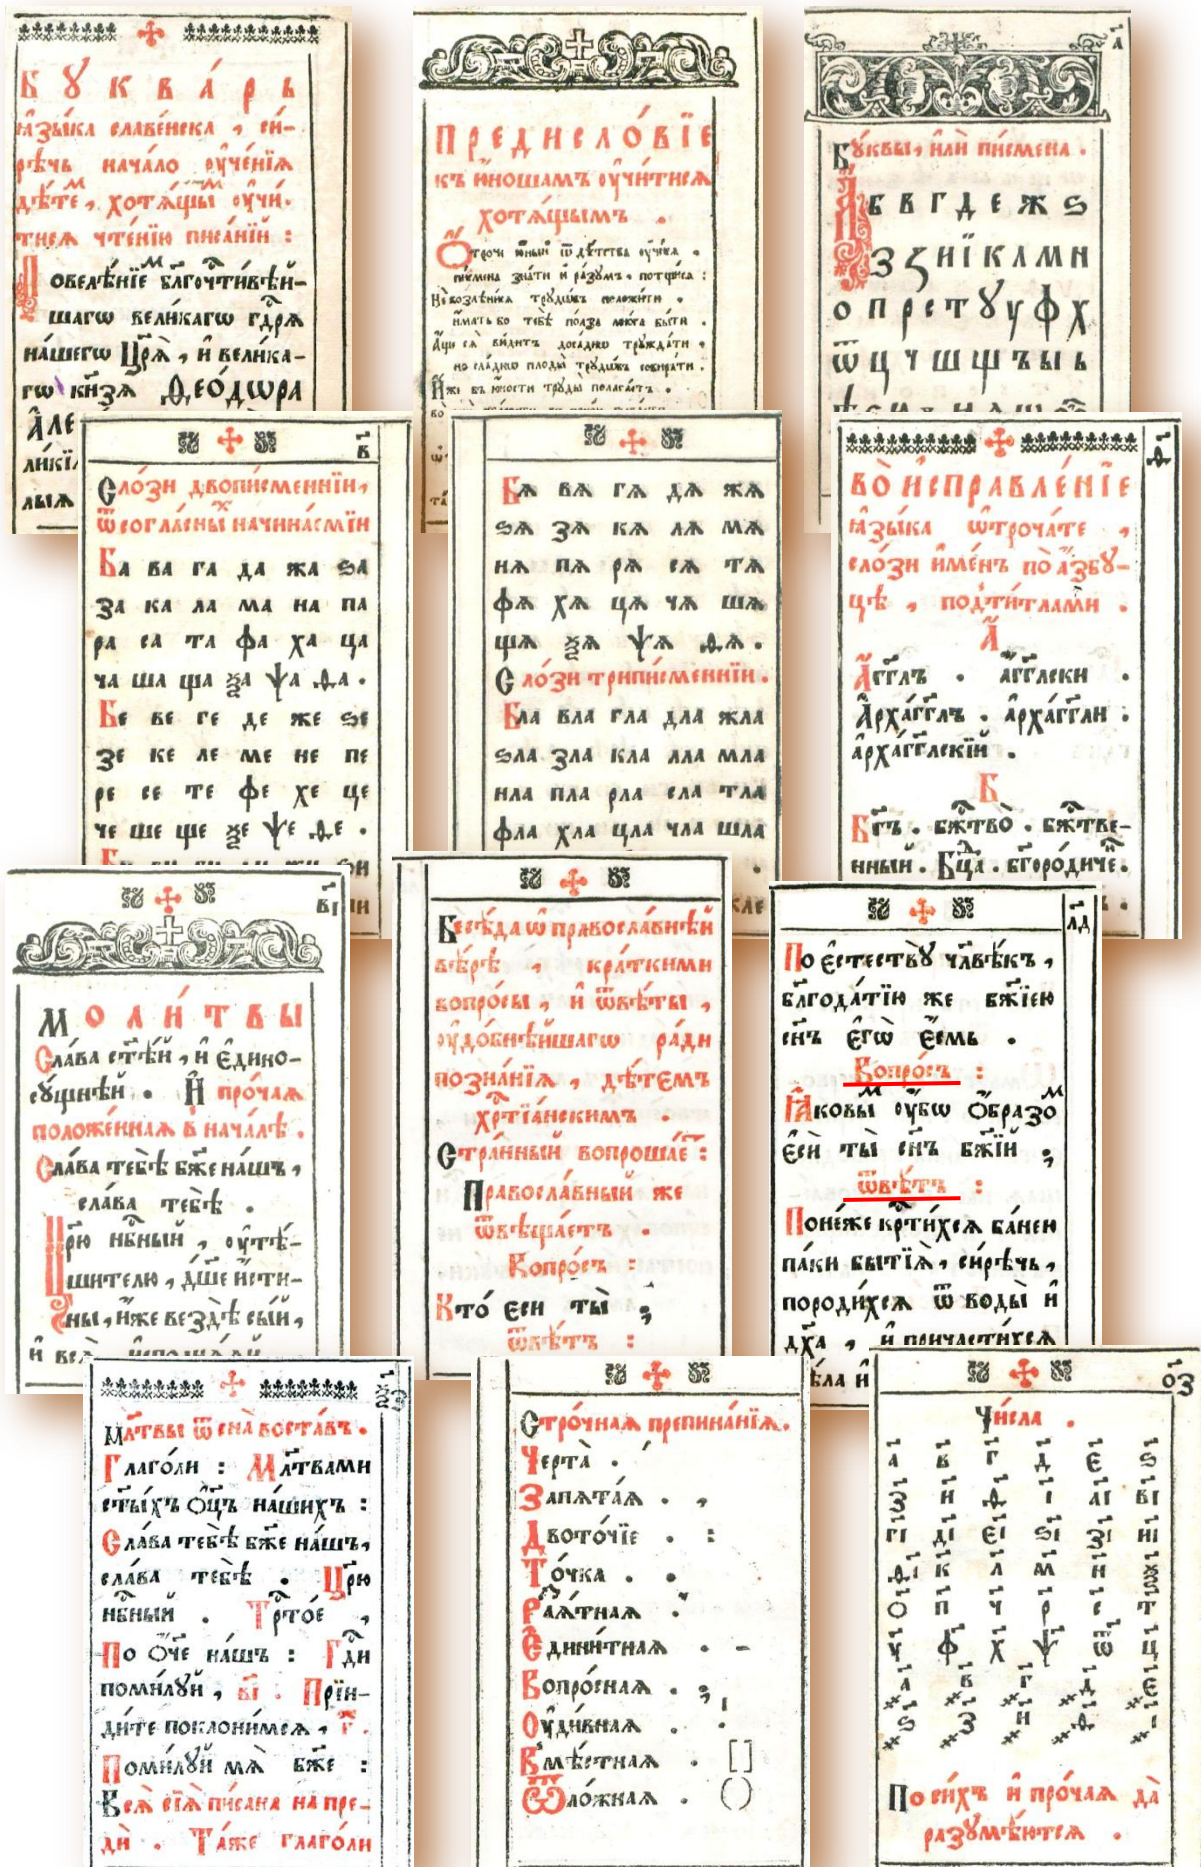 БУКВА́РЬ
ꙗ҆зы́ка славе́нска , си-
рѣчь нача́ло ᲂу҆че́нїѧ
дѣ́теⷨ, хотѧ́щыⷨ ᲂу҆чи́-
тисѧ чте́нїю писа́нїй :
Повелѣ́нїеⷨ бл҃гочⷭ҇ти́вѣй-
шагѡ вели́кагѡ гдⷭ҇рѧ
на́шегѡ Цр҃ѧ̀ , и҆ вели́ка-
гѡ кнѧ́зѧ Ѳео́дѡра
А҆ле
лики́ѧ
лыѧ
ПРЕДИСЛО́ВЇЕ
къ ю҆ношамъ ᲂу҆чи́тисѧ
хотѧ́щымъ .
Ѻ҆трочи ю҆ный ѿ дѣ́тства ᲂу҆чи́сѧ .
письмена зна́ти и҆ ра́зумъ , потщи́сѧ :
Не возлѣни́сѧ трꙋдѡ́въ положи́ти .
и҆мать бо тебѣ̀ по́лза мно́га бы́ти .
А҆ще сѧ ви́дитъ доса́дно трꙋжда́ти .
но сла́дко плоды̀ трꙋдѡ́въ собира́ти .
И҆же въ ю҆ности трꙋды̀ полага́етъ .
а҃
Бу́квы , и҆лѝ пи́смена .
А҆ Б В Г Д Е Ж Ѕ
З Ꙁ И Ї К Л М Н
О П Р С Т Ꙋ У Ф Х
Ѿ Ц Ч Ш Щ Ъ Ы Ь
в҃
Сло́зи двопи́сменнїи ,
ѿ согла́сныⷯ начина́емїи
Ба ва га да жа ѕа
за ка ла ма на па
ра са та фа ха ца
ча ша ща ѯа ѱа ѳа .
Бе ве ге де же ѕе
зе ке ле ме не пе
ре се те фе хе це
че ше ще ѯе ѱе ѳе .
Бѧ вѧ гѧ дѧ жѧ
ѕѧ зѧ кѧ лѧ мѧ
нѧ пѧ рѧ сѧ тѧ
фѧ хѧ цѧ чѧ шѧ
щѧ ѯѧ ѱѧ ѳѧ .
Сло́зи трипи́сменнїи .
Бла вла гла дла жла
ѕла зла кла лла мла
нла пла рла сла тла
фла хла цла чла шла
ѳ҃
ВО И҆СПРАВЛЕ́НЇЕ
ꙗ҆зы́ка ѡ҆троча́те ,
сло́зи и҆ме́нъ по а҆збꙋ-
цѣ , подти́тлами .
А҆
А҆гг҃лъ . а҆гг҃лски .
А҆рха́гг҃лъ . а҆рха́гг҃ли .
а҆рха́гг҃лскїй .
Б
Бг҃ъ . бжⷭ҇тво̀ . бжⷭ҇тве-
нный . Бц҃а . бг҃оро́диче .
в҃і
МОЛИ́ТВЫ
Сла́ва ст҃ѣ́й , и҆ є҆дино-
сꙋ́щнѣй . И҆ про́чаѧ
поло́женнаѧ в нача́лѣ .
Сла́ва тебѣ̀ бж҃е на́шъ ,
сла́ва тебѣ̀ .
Цр҃ю̀ нбⷭ҇ный , ᲂу҆тѣ́-
шителю , дш҃е и҆сти-
ны , и҆́же вездѣ̀ сы́й ,
Бесѣ́да ѡ правосла́внѣй
вѣ́рѣ , кра́ткими
вопро́сы , и҆ ѿвѣ́ты ,
ᲂу҆до́бнѣйшагѡ ра́ди
позна́нїѧ , дѣ́темъ
хрⷭ҇тїа́нскимъ .
Стра́нный вопроша́еⷮ :
Правосла́вный же
ѿвѣща́етъ .
Вопро́съ :
Кто́ є҆си ты̀ ;
ѿвѣ́тъ :
л҃д
По є҆стествꙋ̀ чл҃вѣкъ ,
бл҃года́тїю же бж҃їею
сн҃ъ є҆гѡ̀ є҆́смь .
Вопро́съ :
Ꙗ҆ковы́мⷨ ᲂу҆бѡ ѻ҆́бразоⷨ
є҆сѝ ты̀ сн҃ъ бж҃їй ;
ѿвѣ́тъ :
Поне́же крⷭ҇ти́хсѧ ба́нею
па́ки бытїѧ̀ , си́рѣчь ,
породи́хсѧ ѿ воды̀ и҆
дх҃а , и҆ причасти́хсѧ
Мл҃твы ѿ сна̀ воста́въ .
Глаго́ли : Мл҃твами
ст҃ы́хъ ѻ҆ц҃ъ на́шихъ :
Сла́ва тебѣ̀ бж҃е на́шъ ,
сла́ва тебѣ̀ . Цр҃ю̀
нбⷭ҇ный . Трⷭ҇то́е ,
По ѻ҆́ч҃е на́шъ : Гдⷭ҇и
поми́лꙋй , в҃і . Прїи-
ди́те поклони́мсѧ , г҃ .
Поми́лꙋй мѧ̀ бж҃е :
Всѧ̀ сїѧ̀ пи́сана на пре-
дѝ . Та́же глаго́ли
Стро́чнаѧ препина́нїѧ .
Черта̀ . ́
Запѧта́ѧ . ,
Двото́чїе . :
То́чка . .
Раⷥѧ́тнаѧ . ̆
Є҆дини́тнаѧ . -
Вопро́снаѧ . ;
Оу҆ди́внаѧ . !
Вмѣ́стнаѧ . []
Ѿло́жнаѧ . ()
о҃з
Чи́сла .
а҃ в҃ г҃ д҃ є҃ ѕ҃
з҃ и҃ ѳ҃ і҃ а҃і в҃і
г҃і д҃і є҃і ѕ҃і з҃і и҃і
ѳ҃і к҃ л҃ м҃ н҃ ѯ҃
о҃ п҃ ч҃ р҃ с҃ т҃
у҃ ф҃ х҃ ѱ҃ ѿ҃ ц҃
҂а҃ ҂в҃ ҂г҃ ҂д҃ ҂є҃
҂ѕ҃ ҂з҃ ҂и҃ ҂ѳ҃ ҂і҃
По си́хъ и҆ про́чаѧ да̀
разꙋмѣ́ютсѧ .